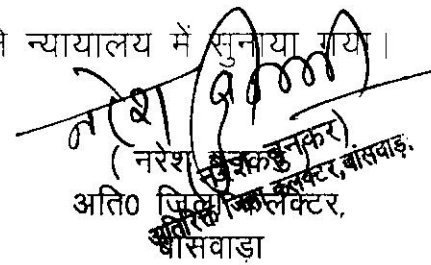 न्यायालय में सुनाया गया।
नरेश
( नरेश बुनकर)
अति0 जिला कलेक्टर,
अतिरिक्त जिला कलक्टर, बांसवाड़ा.
बांसवाड़ा